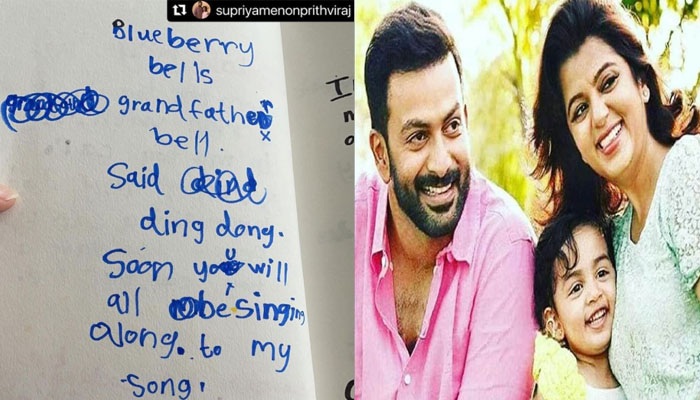 supriyamenonprithviraj
Blueberry
bells
grandfather
bell.
Said
ding dong.
Soon you will
all be singing
along. to my
song.